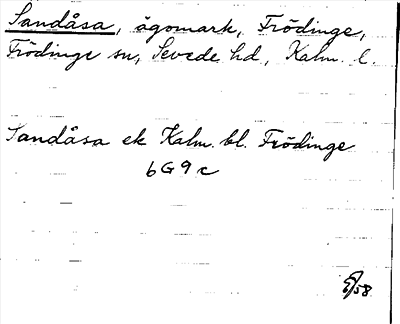 Sandåsa, ägomark, Frödinge,
Frödinge sn, Sevede hd, Kalm. l.
Sandåsa ek Kalm. bl. Frödinge
6G9c
/58